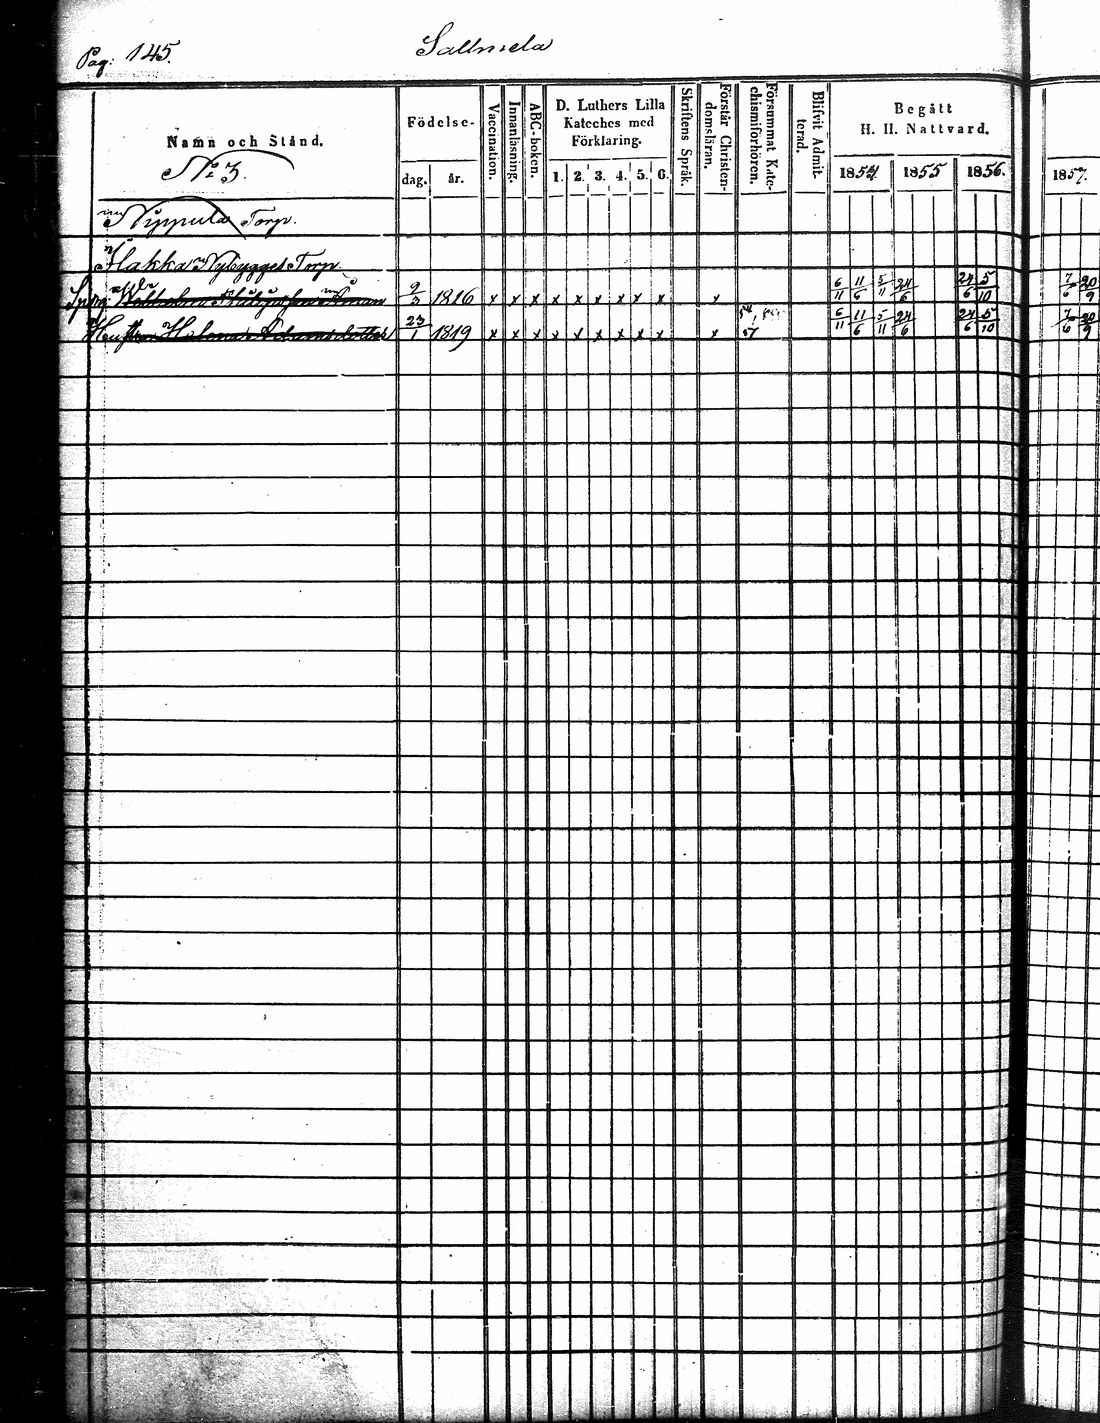 Pag: 145.
Sallmela
Namn och Stånd.
N:o 3.
Födelse-
dag.
år.
Vaccination.
Innanläsning.
ABC-boken.
D. Luthers Lilla
Kateches med
Förklaring.
1. 2. 3. 4. 5. 6.
Skriftens Språk.
Förstår Christen-
domsläran.
Försummat Kate-
chismiförhören.
Blifvit Admit-
terad.
Begått
H. H. Nattvard.
1854 1855 1856. 1857.
Nippula Torp.
Hakka Nybygges Torp
2/3 1816 x x x x x x x x x x 6/11 11/6 5/11 24/6 24/6 5/10 7/6 20/9
Helena 23/1 1819 x x x x x x x x x x 57 6/11 11/6 5/11 24/6 24/6 5/10 7/6 20/9